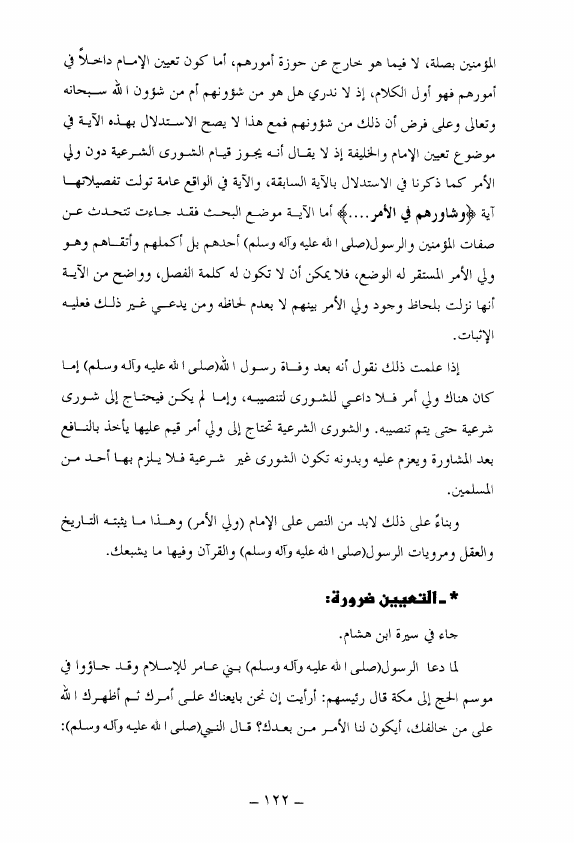 المؤمنين بصلة، لا فيما هو خارج عن حوزة أمورهم، أما كون تعيين الإمام داخلاً في
أمورهم فهو أول الكلام، إذ لا ندري هل هو من شؤونهم أم من شؤون الله سبحانه
وتعالى وعلى فرض أن ذلك من شؤونهم فمع هذا لا يصح الاستدلال بهذه الآية في
موضوع تعيين الإمام والخليفة إذ لا يقال أنه يجوز قيام الشورى الشرعية دون ولي
الأمر كما ذكرنا في الاستدلال بالآية السابقة، والآية في الواقع عامة تولت تفصيلاتها
آية ﴿وشاورهم في الأمر....﴾ أما الآية موضع البحث فقد جاءت تتحدث عن
صفات المؤمنين والرسول(صلى الله عليه وآله وسلم) أحدهم بل أكملهم وأتقاهم وهو
ولي الأمر المستقر له الوضع، فلا يمكن أن لا تكون له كلمة الفصل، وواضح من الآية
أنها نزلت بلحاظ وجود ولي الأمر بينهم لا بعدم لحاظه ومن يدعي غير ذلك فعليه
الإثبات.
إذا علمت ذلك نقول أنه بعد وفاة رسول الله(صلى الله عليه وآله وسلم) إما
كان هناك ولي أمر فلا داعي للشورى لتنصيبه، وإما لم يكن فيحتاج إلى شورى
شرعية حتى يتم تنصيبه. والشورى الشرعية تحتاج إلى ولي أمر قيم عليها يأخذ بالنافع
بعد المشاورة ويعزم عليه وبدونه تكون الشورى غير شرعية فلا يلزم بها أحد من
المسلمين.
وبناءً على ذلك لابد من النص على الإمام (ولي الأمر) وهذا ما يثبته التاريخ
والعقل ومرويات الرسول(صلى الله عليه وآله وسلم) والقرآن وفيها ما يشبعك.
* ـ التعيين ضرورة:
جاء في سيرة ابن هشام.
لما دعا الرسول(صلى الله عليه وآله وسلم) بني عامر للإسلام وقد جاؤوا في
موسم الحج إلى مكة قال رئيسهم: أرأيت إن نحن بايعناك على أمرك ثم أظهرك الله
على من خالفك، أيكون لنا الأمر من بعدك؟ قال النبي(صلى الله عليه وآله وسلم):
ـ ١٢٢ ـ